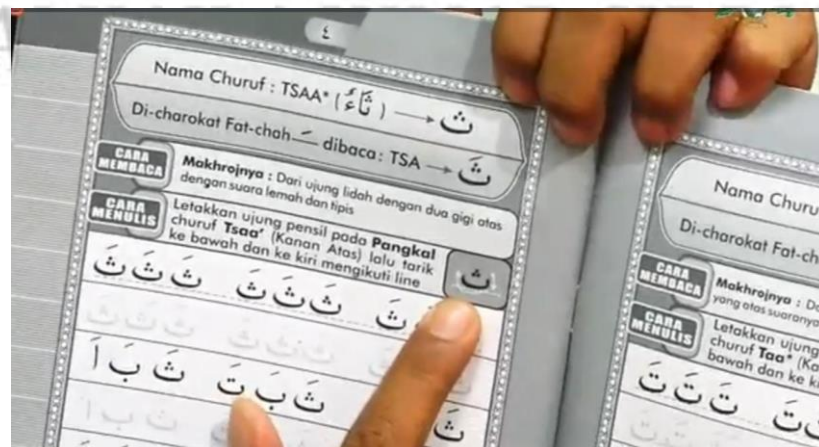 ٤
Nama Churuf : TSAA' (ثَآءٌ) → ث
Di-charokat Fat-chah ـَ dibaca : TSA → ثَ
CARA MEMBACA
Makhrojnya : Dari ujung lidah dengan dua gigi atas
dengan suara lemah dan tipis
CARA MENULIS
Letakkan ujung pensil pada Pangkal
churuf Tsaa' (Kanan Atas) lalu tarik
ke bawah dan ke kiri mengikuti line
ث
ثَ ثَ ثَ ثَ ثَ ثَ ثَ
ثَ ثَ ثَ ثَ ثَ ثَ
ثَ ثَ بَ تَ ثَ بَ اَ
ثَ بَ اَ
Nama Churu
Di-charokat Fat-ch
CARA MEMBACA
Makhrojnya : Da
yang atas suaranya
CARA MENULIS
Letakkan ujung
churuf Taa' (Ka
bawah dan ke ki
تَ تَ تَ تَ